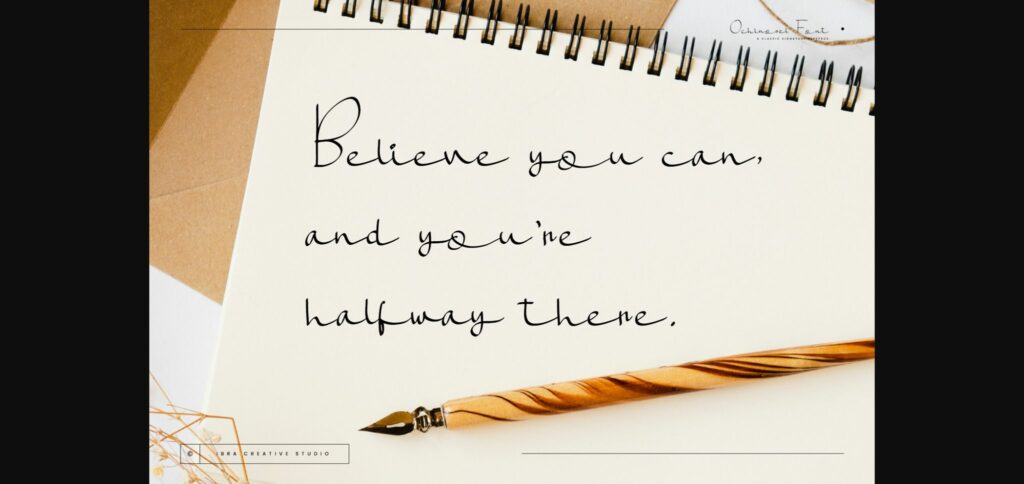 Ochinosei Font
A CLASSIC SIGNATURE TYPEFACE
Believe you can,
and you're
halfway there.
© IBRA CREATIVE STUDIO